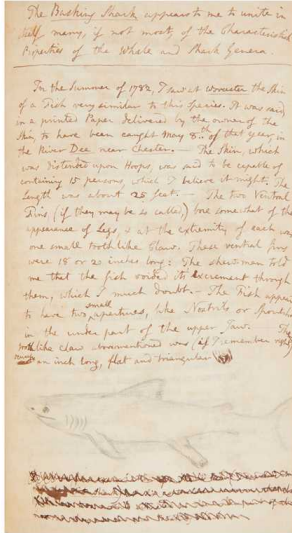 The Basking Shark appears to me to unite in
itself many, if not most, of the Characteristical
Properties of the Whale and Shark Genera.
In the Summer of 1782, I saw at Worcester the Skin
of a Fish very similar to this species. It was said
in a printed Paper delivered by the owner of the
Skin, to have been caught May 8th of that year in
the River Dee near Chester. — The Skin, which
was distended upon Hoops, was said to be capable of
containing 15 persons, which I believe it might. The
Length was about 28 feet. — The two Ventral
Fins (if they may be so called) bore somewhat of the
appearance of Legs, & at the extremity of each was
one small toothlike Claw. These ventral fins
were 18 or 20 inches long: The shewman told
me that the fish voided its excrement through
them, which I much doubt. — The Fish appear
to have two small apertures, like Nostrils or Spouts
in the under part of the upper Jaw. — The
toothlike claw abovementioned was (if I remember right)
an inch long, flat and triangular